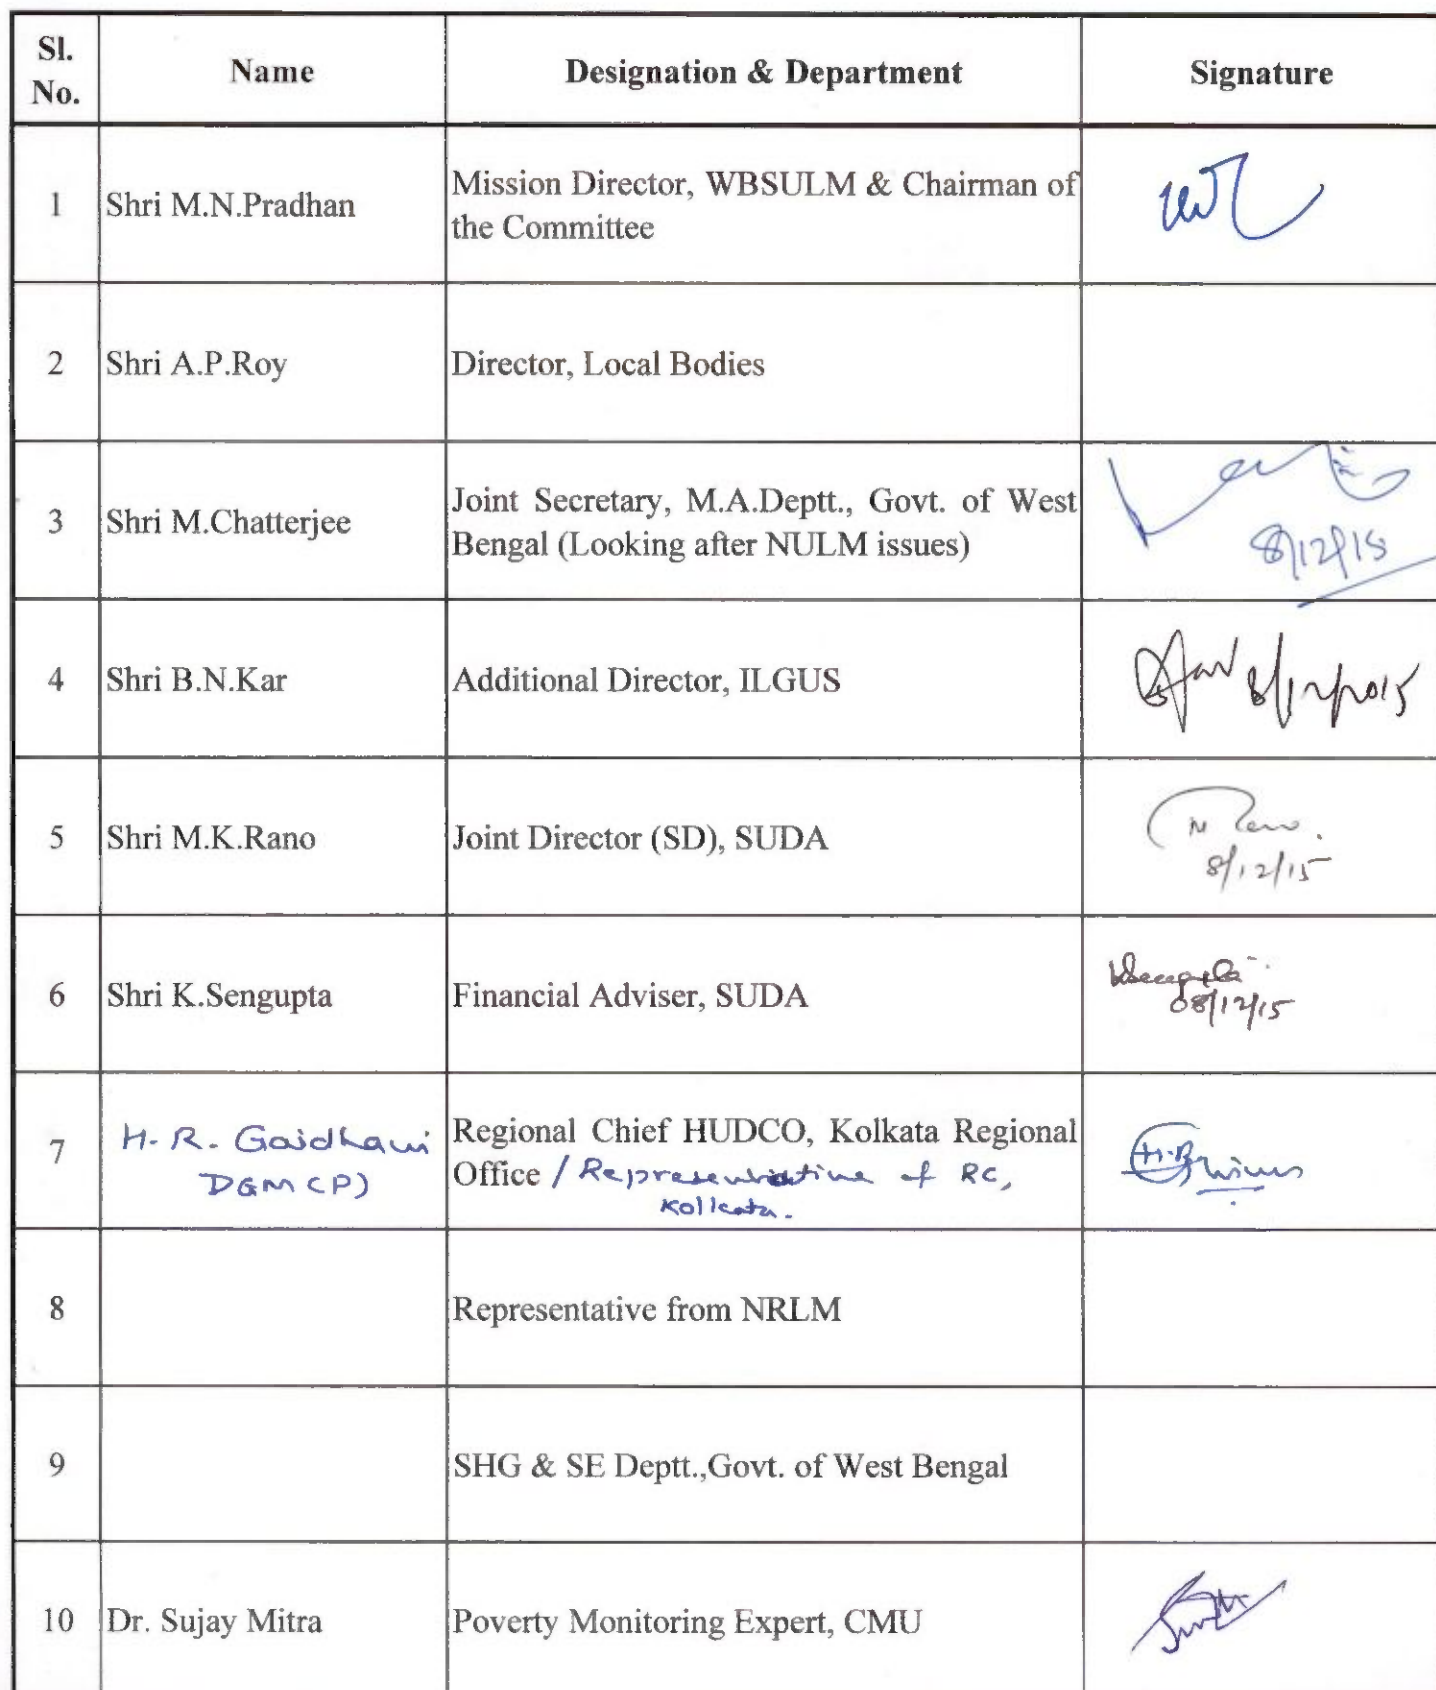 Sl. No. Name Designation & Department Signature
1 Shri M.N.Pradhan Mission Director, WBSULM & Chairman of
the Committee
2 Shri A.P.Roy Director, Local Bodies
3 Shri M.Chatterjee Joint Secretary, M.A.Deptt., Govt. of West
Bengal (Looking after NULM issues)
8/12/15
4 Shri B.N.Kar Additional Director, ILGUS 8/12/2015
5 Shri M.K.Rano Joint Director (SD), SUDA
8/12/15
6 Shri K.Sengupta Financial Adviser, SUDA
08/12/15
7 H.R. Gaidhani Regional Chief HUDCO, Kolkata Regional
DGM (P) Office / Representative of RC,
Kolkata.
8 Representative from NRLM
9 SHG & SE Deptt.,Govt. of West Bengal
10 Dr. Sujay Mitra Poverty Monitoring Expert, CMU